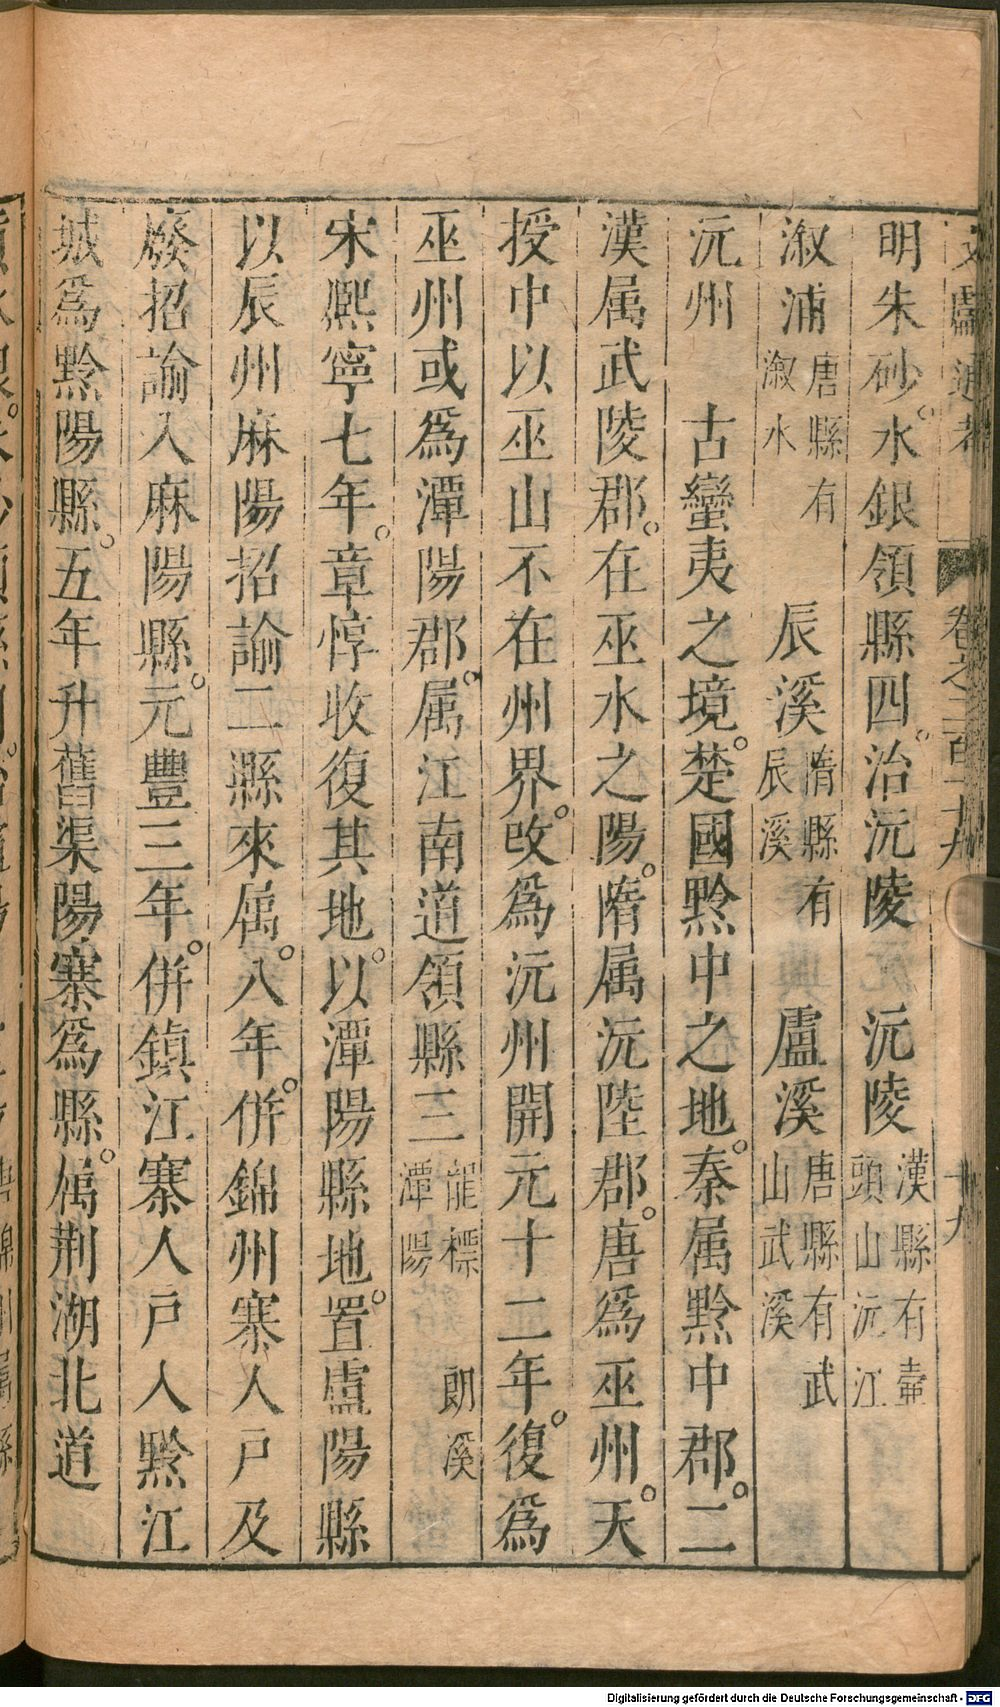 文獻通考 卷之三百十九 十九
明朱砂。水銀領縣四。治沅陵 沅陵漢縣有壷頭山沅江
溆浦唐縣有溆水 辰溪隋縣有辰溪 盧溪唐縣有武山武溪
沅州 古蠻夷之境。楚國黔中之地。秦属黔中郡。二
漢属武陵郡。在巫水之陽。隋属沅陸郡。唐爲巫州。天
授中以巫山不在州界。改爲沅州開元十二年。復爲
巫州或爲潭陽郡。属江南道領縣三龍標 朗溪潭陽
宋熈寧七年。章惇收復其地。以潭陽縣地。置盧陽縣
以辰州麻陽招諭二縣來属。八年。併錦州寨人戸及
廢招諭入麻陽縣。元豐三年。併鎮江寨人戸入黔江
城爲黔陽縣。五年升舊渠陽寨爲縣。属荆湖北道
Digitalisierung gefördert durch die Deutsche Forschungsgemeinschaft - DFG